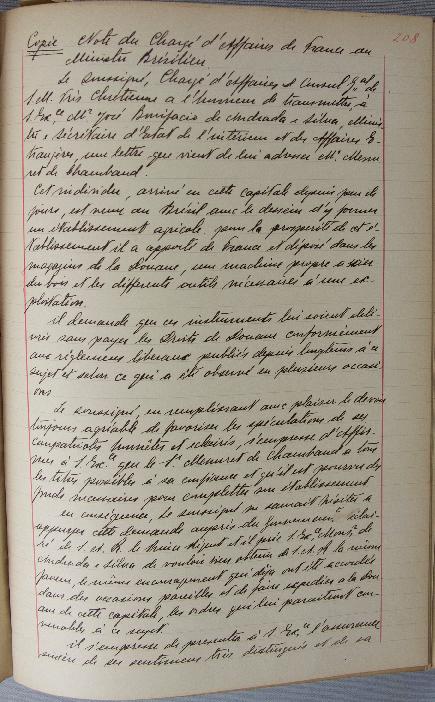 208
Copie Note du Chargé d'Affaires de France au
Ministre Brésilien
Le soussigné, Chargé d'Affaires et Consul Gal de
S. M. Très Chrétienne a l'honneur de transmettre à
S. Exce Mr José Bonifacio de Andrada e Silva, Minis
tre e Sécrétaire d'Etat de l'intérieur et des Affaires E-
trangères, une lettre que vient de lui adresser Mr Menu
ret de Chambaud.
Cet individu, arrivé en cette capitale depuis peu de
jours, est venu au Brésil avec le dessein d'y former
un établissement agricole. pour la prosperité de cet é-
tablissement il a apporté de France et déposé dans les
magazins de la Douane, une machine propre a scier
du bois et les differents outils nécessaires à une ex-
ploitation.
il demande que ces instruments lui soient déli-
vrés sans payer les Droits de Douane conformément
aux réglemens liberaux publiés depuis longtems à ce
sujet et selon ce qui a été observé en plusieurs occasi
ons
Le soussigné, en remplissant avec plaisir le devoir
toujours agréable de favoriser les spéculations de ses
compatriotes honnêtes et eclairés, s'empresse d'affir-
mer à S. Exce que le Sr Menuret de Chambaud a tous
les titres possibles à sa confiance et qu'il est pourvu des
fonds nécessaires pour complettes son établissement
en conséquence, le soussigné ne saurait hésiter a
appuyer cette demande auprès du Gouvernemt éclai-
ré de S. A. R. le Prince Régent et il prie S. Exce Monsr de
Andrada e Silva de vouloir bien obtenir de S. A. R. la même
faveur, le même encouragement qui déja ont été accordés
dans des occasions pareilles et de faire expédier a la dou-
ane de cette capitale, les ordres qui lui paraitront con-
venables à ce sujet.
il s'empresse de presenter à S. Exce l'assurance
sincère de ses sentimens très distingués et de sa